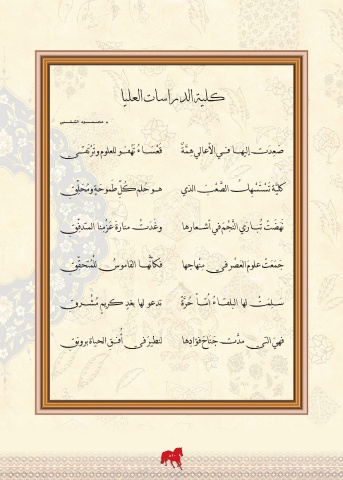 كلية الدراسات العليا
صعدت إليها في الأعالي همّةٌ قعساءُ تهفو للعلوم وترتقي
كليّة تستسهل الصَّعْب الذي هو حلم كلّ طموحةٍ ومُحلّق
نهضتْ تُباري النَّجْمَ في أشعارها وغدتْ منارةَ عزمنا المتدفّق
جَمعتْ علومَ العصْر في منْهاجها فكأنّها القاموسُ للمُتحقّق
سلمتْ لها البلقاءُ أمّاً حُرّةً تدعو لها بغدٍ كريمٍ مُشْرق
فهي التي مدّت جَناحَ فؤادها لنطيرَ في أُفق الحياة برونق